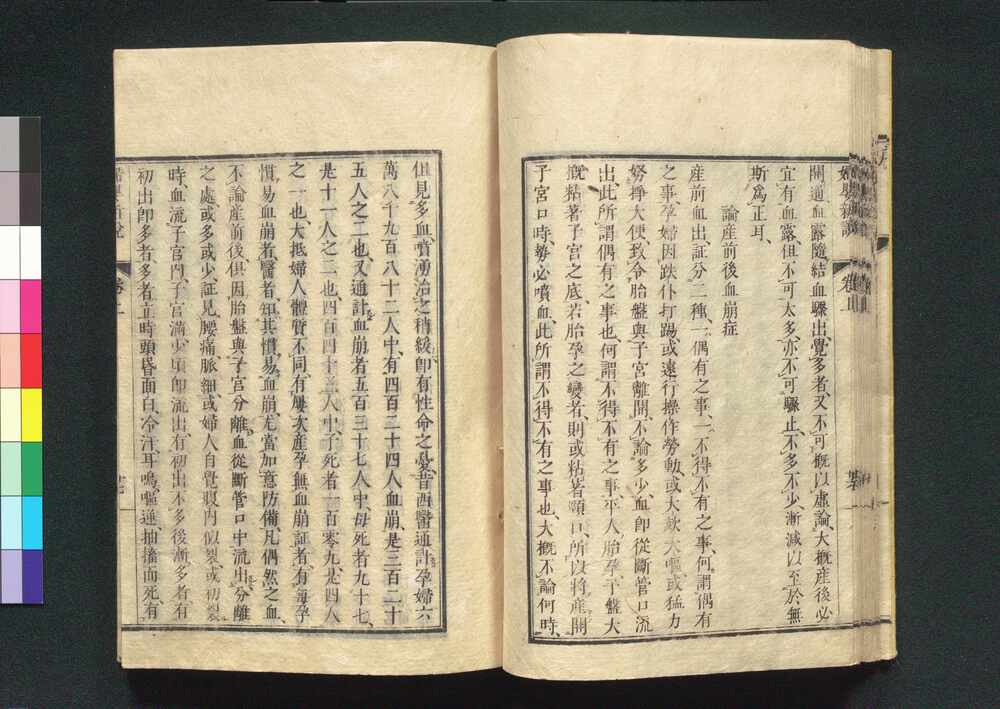 關通、血露隨結、血驟出、覺多者、又不可概以虛論、大概産後必
宜有血露、但不可太多、亦不可驟止、不多不少、漸減以至於無、
斯爲正耳、
論産前後血崩症
産前血出証分二種、一偶有之事、一不得不有之事、何謂偶有
之事、孕婦因跌仆打踢、或遠行操作勞動、或大欬大嘔、或猛力
努掙大便、致令胎盤與子宮離間、不論多少、血即從斷管口流
出、此所謂偶有之事也、何謂不得不有之事、平人胎孕子盤大
概粘著子宮之底、若胎孕之變者、則或粘著頸口、所以將産、開
子宮口時、勢必噴血、此所謂不得不有之事也、大概不論何時、
但見多血噴湧、治之稍緩、即有性命之憂、昔西醫通計孕婦六
萬八千九百八十二人中、有四百三十四人血崩、是三百二十
五人之二也、又通計血崩者五百三十七人中、母死者九十七、
是十一人之二也、四百四十人中、子死者一百零九、是四人
之一也、大抵婦人體質不同、有屢次産孕無血崩証者、有每孕
慣易血崩者、醫者知其慣易血崩、尤當加意防備、凡偶然之血、
不論産前後、俱因胎盤與子宮分離、血從斷管口中流出、分離
之處、或多或少、証見腰痛脈細、或婦人自覺腹內似裂、或初裂
時、血流子宮內、子宮滿少頃即流出、有初出不多後漸多者、有
初出即多者、多者立時頭昏面白、冷汗、耳鳴、嘔逆、抽搐而死、有